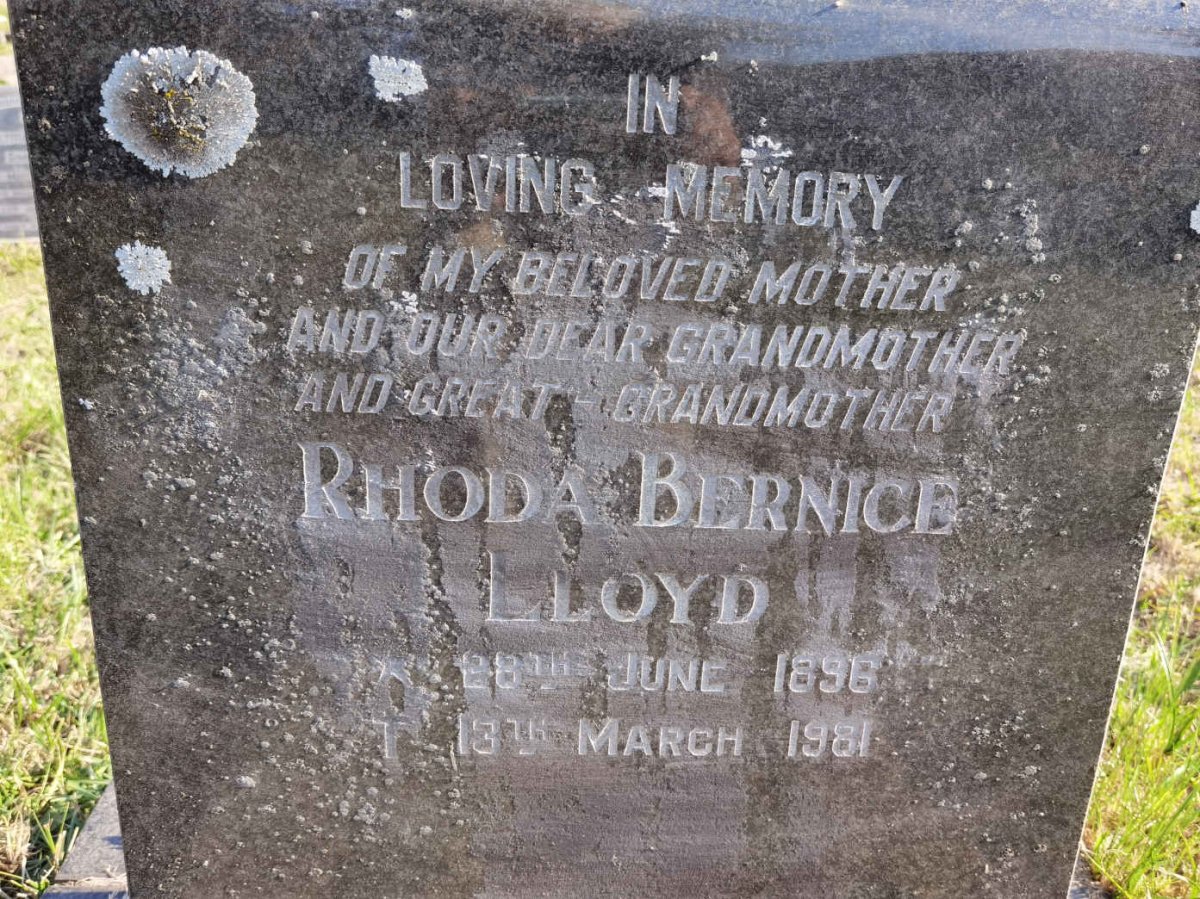 IN
LOVING MEMORY
OF MY BELOVED MOTHER
AND OUR DEAR GRANDMOTHER
AND GREAT - GRANDMOTHER
RHODA BERNICE
LLOYD
28TH JUNE
† 13TH MARCH 1981